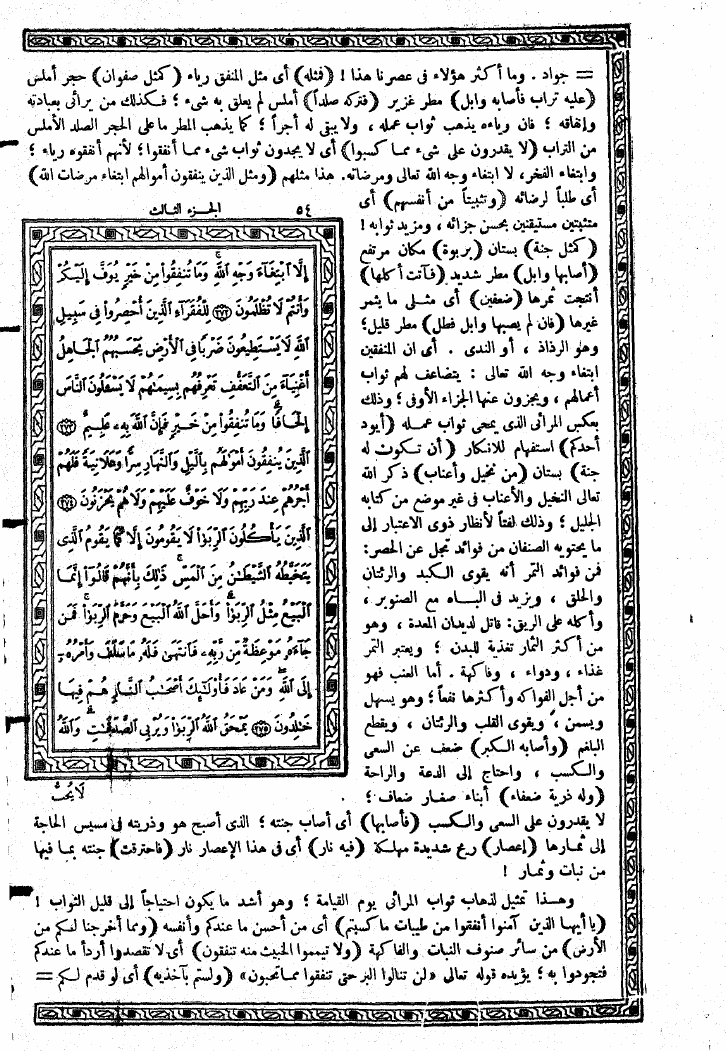 = جواد . وما أكثر هؤلاء فى عصرنا هذا ! (فمثله) أى مثل المنفق رياء (كمثل صفوان) حجر أملس
(عليه تراب فأصابه وابل) مطر غزير (فتركه صلداً) أملس لم يعلق به شىء ؛ فكذلك من يرائى بعبادته
وإنفاقه ؛ فان رياءه يذهب ثواب عمله ، ولا يبقى له أجراً ؛ كما يذهب المطر ما على الحجر الصلد الأملس
من التراب (لا يقدرون على شىء مما كسبوا) أى لا يجدون ثواب شىء مما أنفقوا ؛ لأنهم أنفقوه رياء ؛
وابتغاء الفخر، لا ابتغاء وجه الله تعالى ومرضاته. هذا مثلهم (ومثل الذين ينفقون أموالهم ابتغاء مرضات الله)
أى طلباً لرضائه (وتثبيتاً من أنفسهم) أى
متثبتين مستيقنين بحسن جزائه ، ومزيد ثوابه !
(كمثل جنة) بستان (بربوة) مكان مرتفع
(أصابها وابل) مطر شديد (فآتت أكلها)
أنتجت ثمرها (ضعفين) أى مثلى ما يثمر
غيرها (فان لم يصبها وابل فطل) مطر قليل؛
وهو الرذاذ ، أو الندى . أى ان المنفقين
ابتغاء وجه الله تعالى : يتضاعف لهم ثواب
أعمالهم ، ويجزون عنها الجزاء الأوفى ؛ وذلك
بعكس المرائى الذى يمحى ثواب عمله (أيود
أحدكم) استفهام للانكار (أن تكون له
جنة) بستان (من نخيل وأعناب) ذكر الله
تعالى النخيل والأعناب فى غير موضع من كتابه
الجليل ؛ وذلك لفتاً لأنظار ذوى الاعتبار إلى
ما يحتويه الصنفان من فوائد تجل عن الحصر:
فمن فوائد التمر أنه يقوى الكبد والرئتان
والحلق ، ويزيد فى الباه مع الصنوبر ،
وأكله على الريق: قاتل لديدان المعدة ، وهو
من أكثر الثمار تغذية للبدن ؛ ويعتبر التمر
غذاء ، ودواء ، وفاكهة . أما العنب فهو
من أجل الفواكه وأكثرها نفعاً ؛ وهو يسهل
ويسمن ، ويقوى القلب والرئتان ، ويقطع
البلغم (وأصابه الكبر) ضعف عن السعى
والكسب ، واحتاج إلى الدعة والراحة
(وله ذرية ضعفاء) أبناء صغار ضعاف ؛
٥٤ الجزء الثالث
إِلَّا ٱبْتِغَآءَ وَجْهِ ٱللَّهِ وَمَا تُنفِقُوا۟ مِنْ خَيْرٍ يُوَفَّ إِلَيْكُمْ
وَأَنتُمْ لَا تُظْلَمُونَ ٢٧٢ لِلْفُقَرَآءِ ٱلَّذِينَ أُحْصِرُوا۟ فِى سَبِيلِ
ٱللَّهِ لَا يَسْتَطِيعُونَ ضَرْبًا فِى ٱلْأَرْضِ يَحْسَبُهُمُ ٱلْجَاهِلُ
أَغْنِيَآءَ مِنَ ٱلتَّعَفُّفِ تَعْرِفُهُم بِسِيمَـٰهُمْ لَا يَسْـَٔلُونَ ٱلنَّاسَ
إِلْحَافًا وَمَا تُنفِقُوا۟ مِنْ خَيْرٍ فَإِنَّ ٱللَّهَ بِهِۦ عَلِيمٌ ٢٧٣
ٱلَّذِينَ يُنفِقُونَ أَمْوَٰلَهُم بِٱلَّيْلِ وَٱلنَّهَارِ سِرًّا وَعَلَانِيَةً فَلَهُمْ
أَجْرُهُمْ عِندَ رَبِّهِمْ وَلَا خَوْفٌ عَلَيْهِمْ وَلَا هُمْ يَحْزَنُونَ ٢٧٤
ٱلَّذِينَ يَأْكُلُونَ ٱلرِّبَوٰا۟ لَا يَقُومُونَ إِلَّا كَمَا يَقُومُ ٱلَّذِى
يَتَخَبَّطُهُ ٱلشَّيْطَـٰنُ مِنَ ٱلْمَسِّ ذَٰلِكَ بِأَنَّهُمْ قَالُوٓا۟ إِنَّمَا
ٱلْبَيْعُ مِثْلُ ٱلرِّبَوٰا۟ وَأَحَلَّ ٱللَّهُ ٱلْبَيْعَ وَحَرَّمَ ٱلرِّبَوٰا۟ فَمَن
جَآءَهُۥ مَوْعِظَةٌ مِّن رَّبِّهِۦ فَٱنتَهَىٰ فَلَهُۥ مَا سَلَفَ وَأَمْرُهُۥٓ
إِلَى ٱللَّهِ وَمَنْ عَادَ فَأُو۟لَـٰٓئِكَ أَصْحَـٰبُ ٱلنَّارِ هُمْ فِيهَا
خَـٰلِدُونَ ٢٧٥ يَمْحَقُ ٱللَّهُ ٱلرِّبَوٰا۟ وَيُرْبِى ٱلصَّدَقَـٰتِ وَٱللَّهُ
لَا يُحِبُّ
لا يقدرون على السعى والكسب (فأصابها) أى أصاب جنته ؛ الذى أصبح هو وذريته فى مسيس الحاجة
إلى ثمارها (إعصار) ريح شديدة مهلكة (فيه نار) أى فى هذا الإعصار نار (فاحترقت) جنته بما فيها
من نبات وثمار !
وهذا تمثيل لذهاب ثواب المرائى يوم القيامة ؛ وهو أشد ما يكون احتياجاً إلى قليل الثواب !
(يا أيها الذين آمنوا أنفقوا من طيبات ما كسبتم) أى من أحسن ما عندكم وأنفسه (ومما أخرجنا لكم من
الأرض) من سائر صنوف النبات والفاكهة (ولا تيمموا الخبيث منه تنفقون) أى لا تقصدوا أردأ ما عندكم
فتجودوا به ؛ يؤيده قوله تعالى «لن تنالوا البر حتى تنفقوا مما تحبون» (ولستم بآخذيه) أى لو قدم لكم =